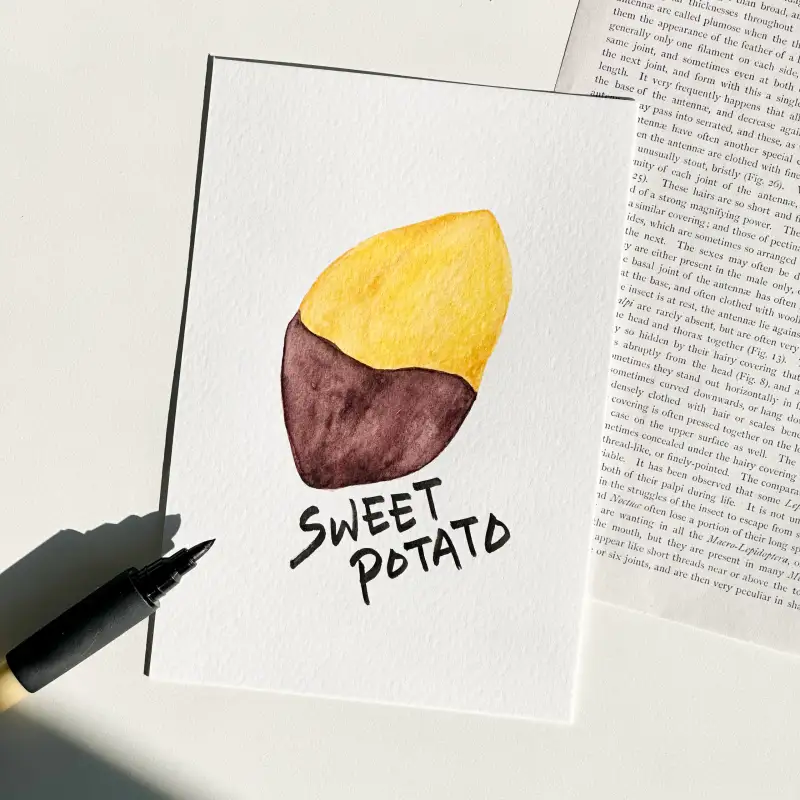 SWEET
POTATO
than broad, a
thicknesses throughout
antennæ are called plumose when the th
them the appearance of the feather of a
generally only one filament on each side,
same joint, and sometimes even at both
the next joint, and form with this a single
length. It very frequently happens that all
the base of the antennæ, and decrease agai
ay pass into serrated, and these, as
tennæ have often another special
en the antennæ are clothed with fine
unusually stout, bristly (Fig. 26).
mity of each joint of the antennæ,
25). These hairs are so short and
d of a strong magnifying power. The
a similar covering; and those of pectina
ides, which are sometimes so arranged
the next. The sexes may often be d
y are either present in the male only,
e basal joint of the antennæ has often
at the base, and often clothed with wooll
e insect is at rest, the antennæ lie agains
alpi are rarely absent, but are often very
e head and thorax together (Fig. 13).
y so hidden by their hairy covering that
s abruptly from the head (Fig. 8), and a
metimes they stand out horizontally in f
sometimes curved downwards, or hang do
densely clothed with hair or scales bene
covering is often pressed together on the l
case on the upper surface as well. The
metimes concealed under the hairy covering
thread-like, or finely-pointed. The compara
iable. It has been observed that some Lep
both of their palpi during life. It is not un
in the struggles of the insect to escape from s
d Noctuæ often lose a portion of their long sp
are wanting in all the Macro-Lepidoptera, o
the mouth, but they are present in many M
appear like short threads near or above the to
or six joints, and are then very peculiar in sha